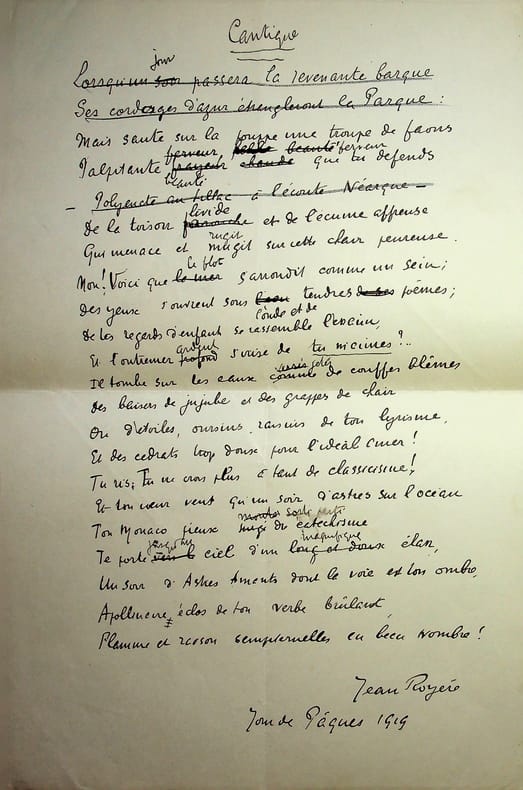 Cantique
jour
Lorsqu'un soir passera la revenante barque
Ses cordages d'azur étrangleront la Parque :
Mais saute sur la poupe une troupe de faons
ferveur beauté ferveur
Palpitante chaude que tu defends
beauté
– Polyeucte au tillac à l'écoute Néarque –
livide
De la toison et de l'écume affreuse
rugit
Qui menace et mugit sur cette chair peureuse.
le flot
Non! Voici que la mer s'arrondit comme un sein;
Des yeux s'ouvrent sous l'eau tendres poèmes;
l'onde et de
De tes regards d'enfant se rassemble l'essaim,
ardent
Et l'outremer profond s'irise de tu m'aimes?..
Il tombe sur les eaux comme de touffes blêmes
Des baisers de jujube et des grappes de chair
Ou d'étoiles, oursins, raisins de ton lyrisme,
Et des cedrats trop doux pour l'idéal amer!
Tu ris; Tu ne crois plus à tant de classicisme!
Et ton cœur veut qu'un soir d'astres sur l'océan
Ton Monaco pieux du catechisme
jusqu'au magnifique
Te porte vers le ciel d'un long et doux élan,
Un soir d'Astres Aments dont la voie est ton ombre,
Apollinaire, éclos de ton verbe brûlant,
Flamme et raison sempiternelles en beau Nombre!
Jean Royère
Jour de Pâques 1919